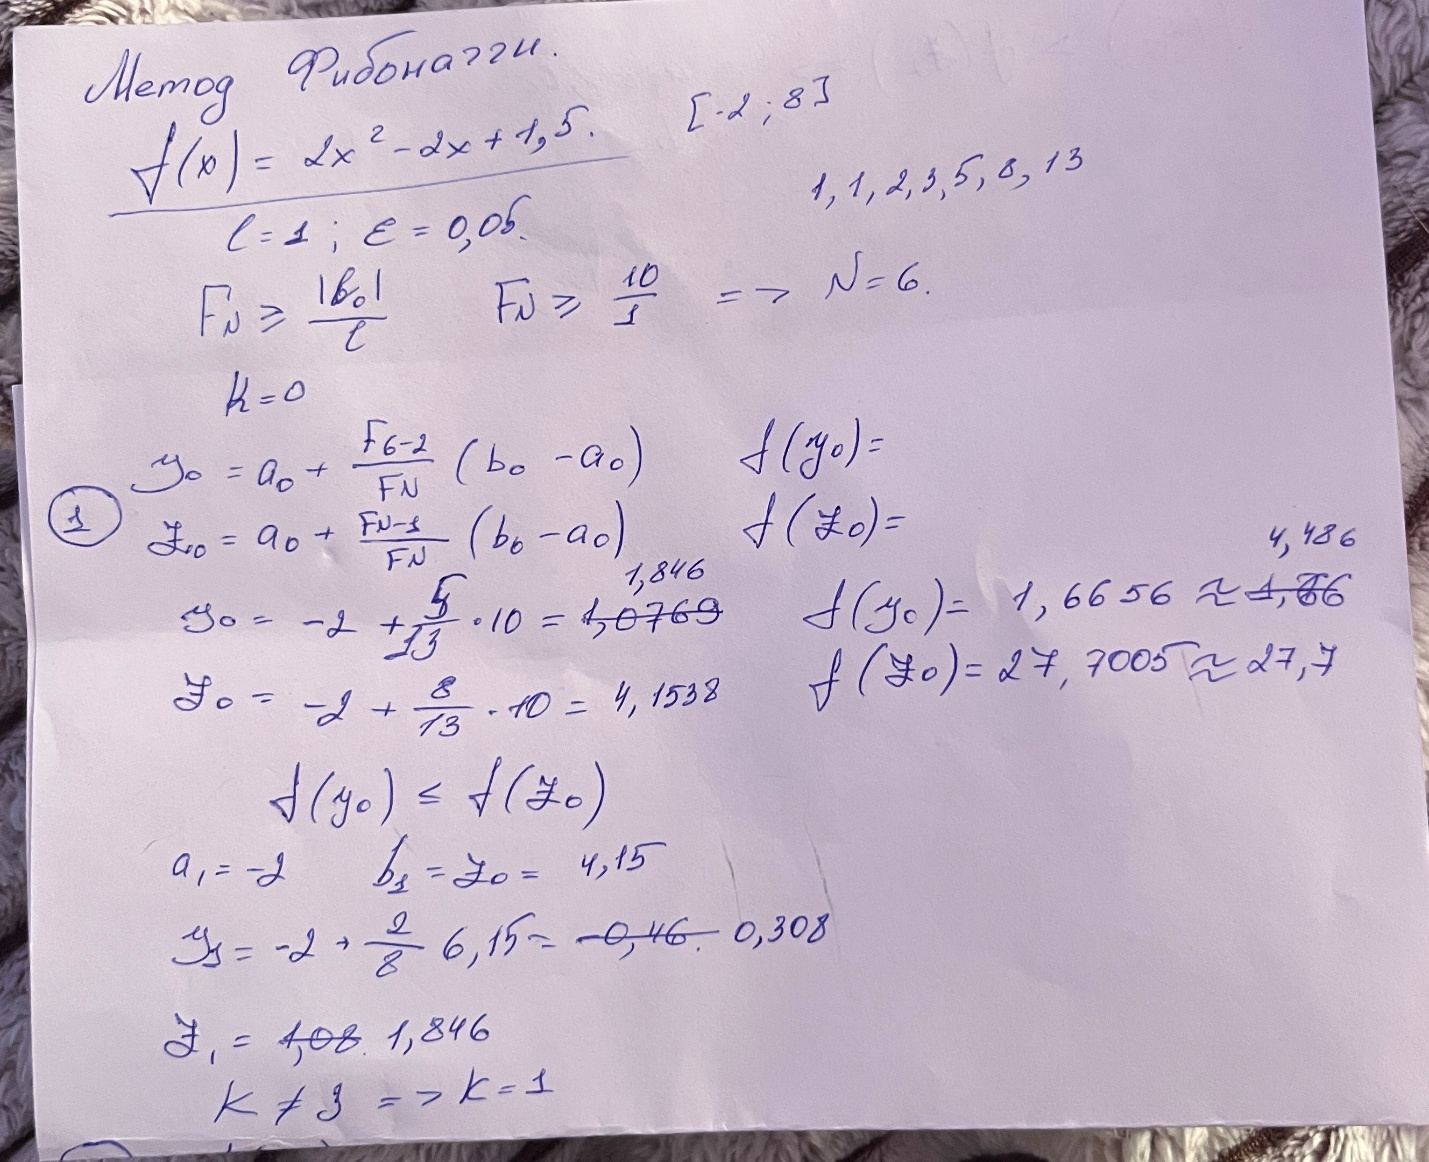 Метод Фибоначчи.
f(x) = 2x² - 2x + 1,5. [-2; 8]
1, 1, 2, 3, 5, 8, 13
l = 1; ε = 0,05.
F_N ≥ |b₀| / l F_N ≥ 10/1 => N = 6.
k = 0
y₀ = a₀ + F6-2/FN (b₀ - a₀) f(y₀) =
① z₀ = a₀ + FN-1/FN (b₀ - a₀) f(z₀) =
y₀ = -2 + 5/13 · 10 = 1,0769 1,846 f(y₀) = 1,6656 ≈ 1,66 4,486
z₀ = -2 + 8/13 · 10 = 4,1538 f(z₀) = 27,7005 ≈ 27,7
f(y₀) ≤ f(z₀)
a₁ = -2 b₁ = z₀ = 4,15
y₁ = -2 + 2/8 6,15 = -0,46. 0,308
z₁ = 1,08. 1,846
k ≠ 3 => k = 1